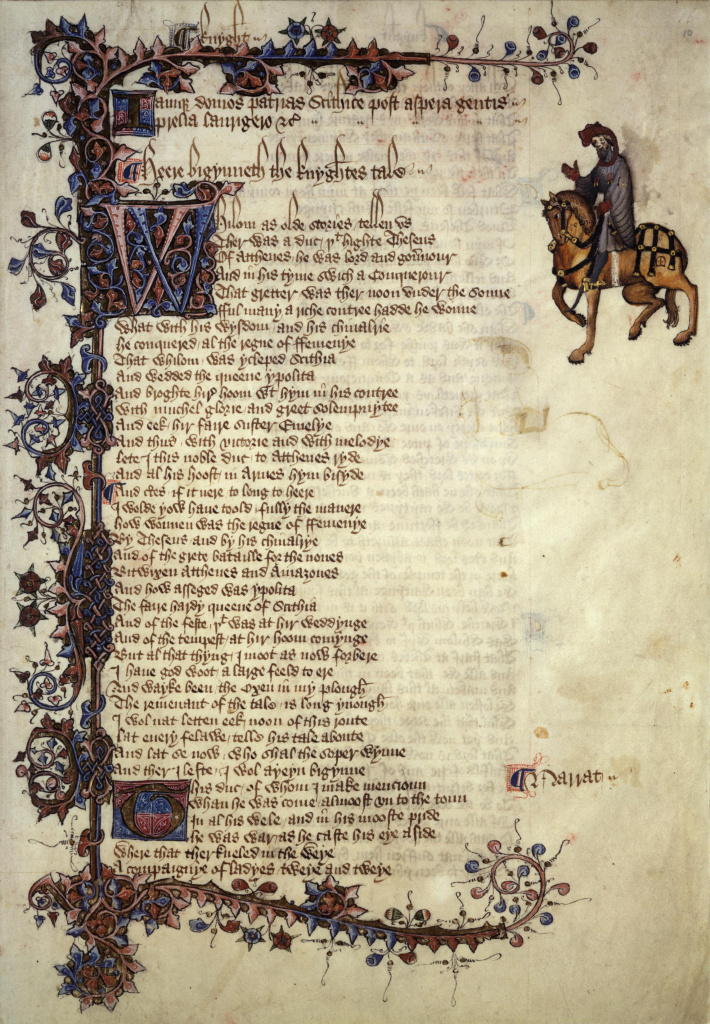 Knyght
Iamque domos patrias Scithice post aspera gentis
prelia laurigero &c
Heere bigynneth the knyghtes tale
Whilom as olde stories tellen vs
Ther was a duc þt highte Theseus
Of Atthenes he was lord and gouernour
And in his tyme swich a Conquerour
That gretter was ther noon vnder the sonne
fful many a riche contree hadde he wonne
What with his wysdom and his chiualrie
he conquered al the regne of ffemenye
That whilom was ycleped Scithia
And wedded the queene ypolita
And broghte hire hoom wt hym in his contree
With muchel glorie and greet solempnytee
And eek hir faire suster Emelye
And thus with victorie and with melodye
lete I this noble duc to Atthenes ryde
And al his hoost in Armes hym bisyde
And certes if it nere to long to heere
I wolde yow haue toold fully the manere
how wonnen was the regne of ffemenye
By Theseus and by his chiualrye
And of the grete bataille for the nones
Bitwixen Atthenes and Amazones
And how asseged was ypolita
The faire hardy queene of Scithia
And of the feste þt was at hir weddynge
And of the tempest at hir hoom comynge
But al that thyng I moot as now forbere
I haue god woot a large feeld to ere
And wayke been the Oxen in my plough
The remenant of the tale is long ynough
I wol nat letten eek noon of this route
lat euery felawe telle his tale aboute
And lat se now who shal the soper wynne
And ther I lefte I wol ayeyn bigynne
Narrat
This duc of whom I make mencioun
Whan he was come almoost vn to the toun
In al his wele and in his mooste pride
he was war as he caste his eye aside
Where that ther kneled in the weye
A compaignye of ladyes tweye and tweye